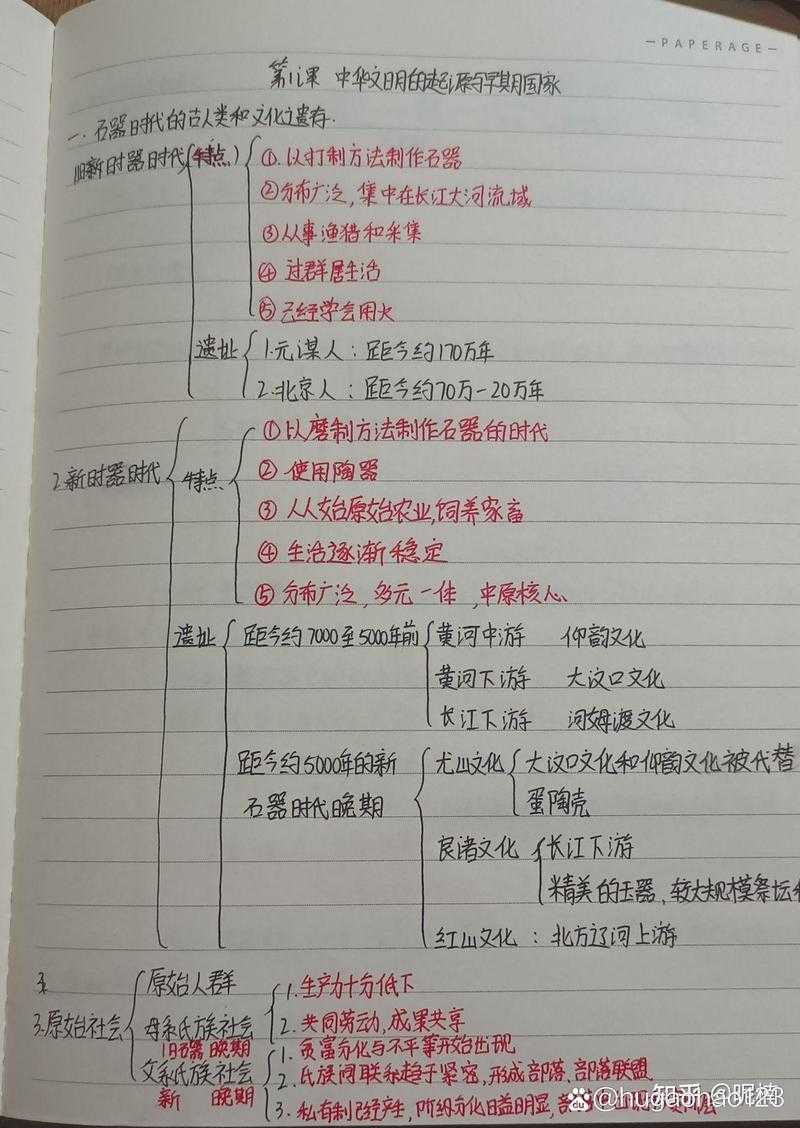 —PAPERAGE—
第1课 中华文明的起源与早期国家
一.石器时代的古人类和文化遗存.
旧新时器时代(特点.) ①.以打制方法制作石器
②分布广泛,集中在长江大河流域
③从事渔猎和采集
④ 过群居生活
⑤ 已经学会用火
遗址 1.元谋人:距今约170万年
2.北京人:距今约70万-20万年
2.新时器时代 特点 ①以磨制方法制作石器的时代
② 使用陶器
③ 人从始原始农业,饲养家畜
④ 生活逐渐稳定
⑤ 分布广泛,多元一体,中原核心、
遗址 距今约7000至5000年前 黄河中游 仰韵文化
黄河下游 大汶口文化
长江下游 河姆渡文化
距今约5000年的新石器时代晚期 尤山文化 大汶口文化和仰韵文化被代替
蛋陶壳
良诸文化 长江下游
精美的玉器、较大规模祭坛
红山文化:北方辽河上游
3.原始社会 原始人群 1.生产力十分低下
母系氏族社会 2.共同劳动,成果共享
旧石器晚期 1.贫富分化与不平等开始出现
父系氏族社会 2.氏族间联系趋于紧密,形成部落、部落联盟.
新 晚期 3.私有制已经产生,阶级分化日益明显,
知乎 @昵楠
@hugaohao6123